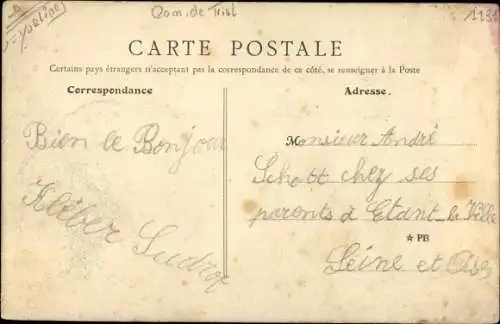 Com. de
CARTE POSTALE
Certains pays étrangers n'acceptant pas la correspondance de ce côté, se renseigner à la Poste
Correspondance
Adresse.
Bien le Bonjour
Kléber
Monsieur André
Schott chez ses
parents à Etant la Ville
★ PB
Seine et Oise